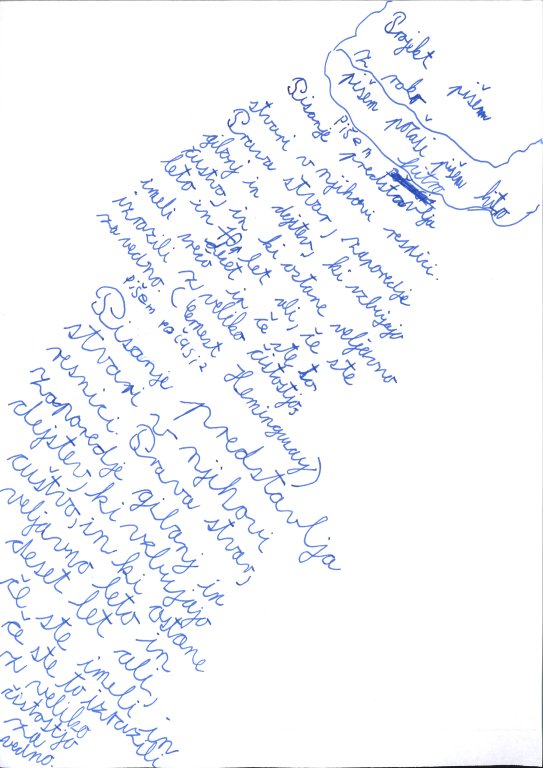 Projekt pišem
z roko pišem hitro
pišem počasi pišem
hitro
pišem
Pisanje predstavlja
stvari v njihovi resnici.
Prava stvar, zaporedje
gibanj in dejstev, ki vzbujajo
čustvo, in ki ostane veljavno
leto in deset let ali, če ste
imeli srečo in če ste to
izrazili z veliko čistostjo,
za vedno. (Ernest Hemingway)
pišem počasi:
Pisanje predstavlja
stvari v njihovi
resnici. Prava stvar,
zaporedje gibanj in
dejstev, ki vzbujajo
čustvo, in ki ostane
veljavno leto in
deset let ali,
če ste imeli in
če ste to izrazili
z veliko
čistostjo
za
vedno.